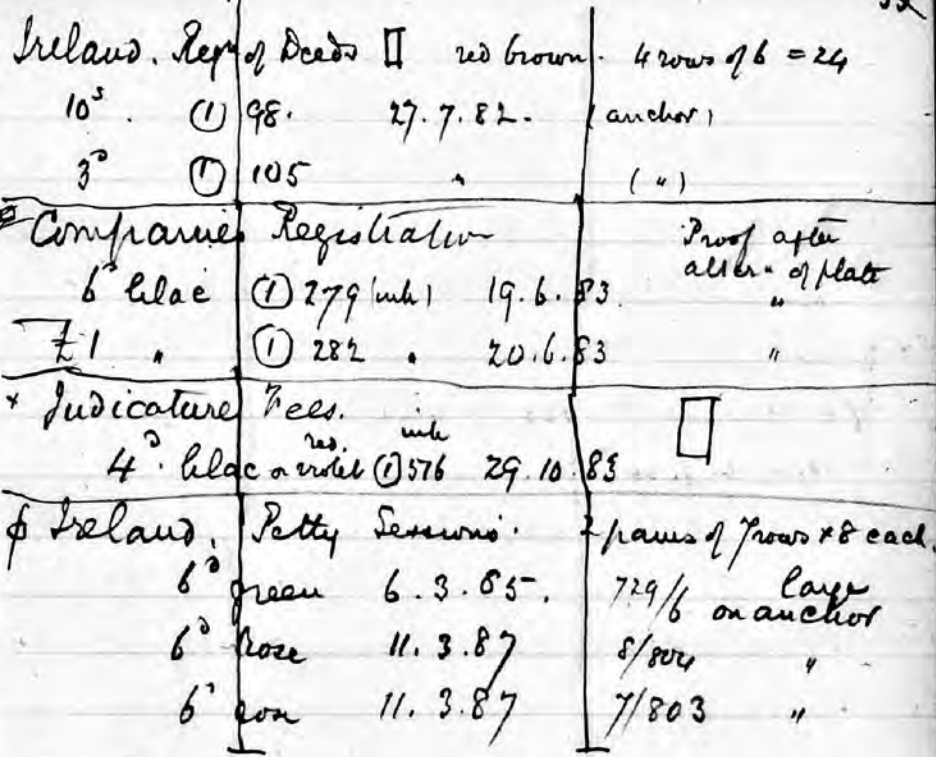 Ireland. Regy of Deeds ▯ red brown. 4 rows of 6 = 24
10s. ① 98. 27.7.82. (anchor)
3d ① 105 " (")
Companies Registration Proof after
altern. of plate
6d lilac ① 279 (mk) 19.6.83. "
£1 " ① 282 " 20.6.83 "
x Judicature Fees. ▯
red mk
4d. lilac or violet ① 576 29.10.83
φ Ireland. Petty Sessions. panes of 7 rows x 8 each.
6d green 6.3.85. 729/6 large
on anchor
6d rose 11.3.87 8/804 "
6d rose 11.3.87 7/803 "